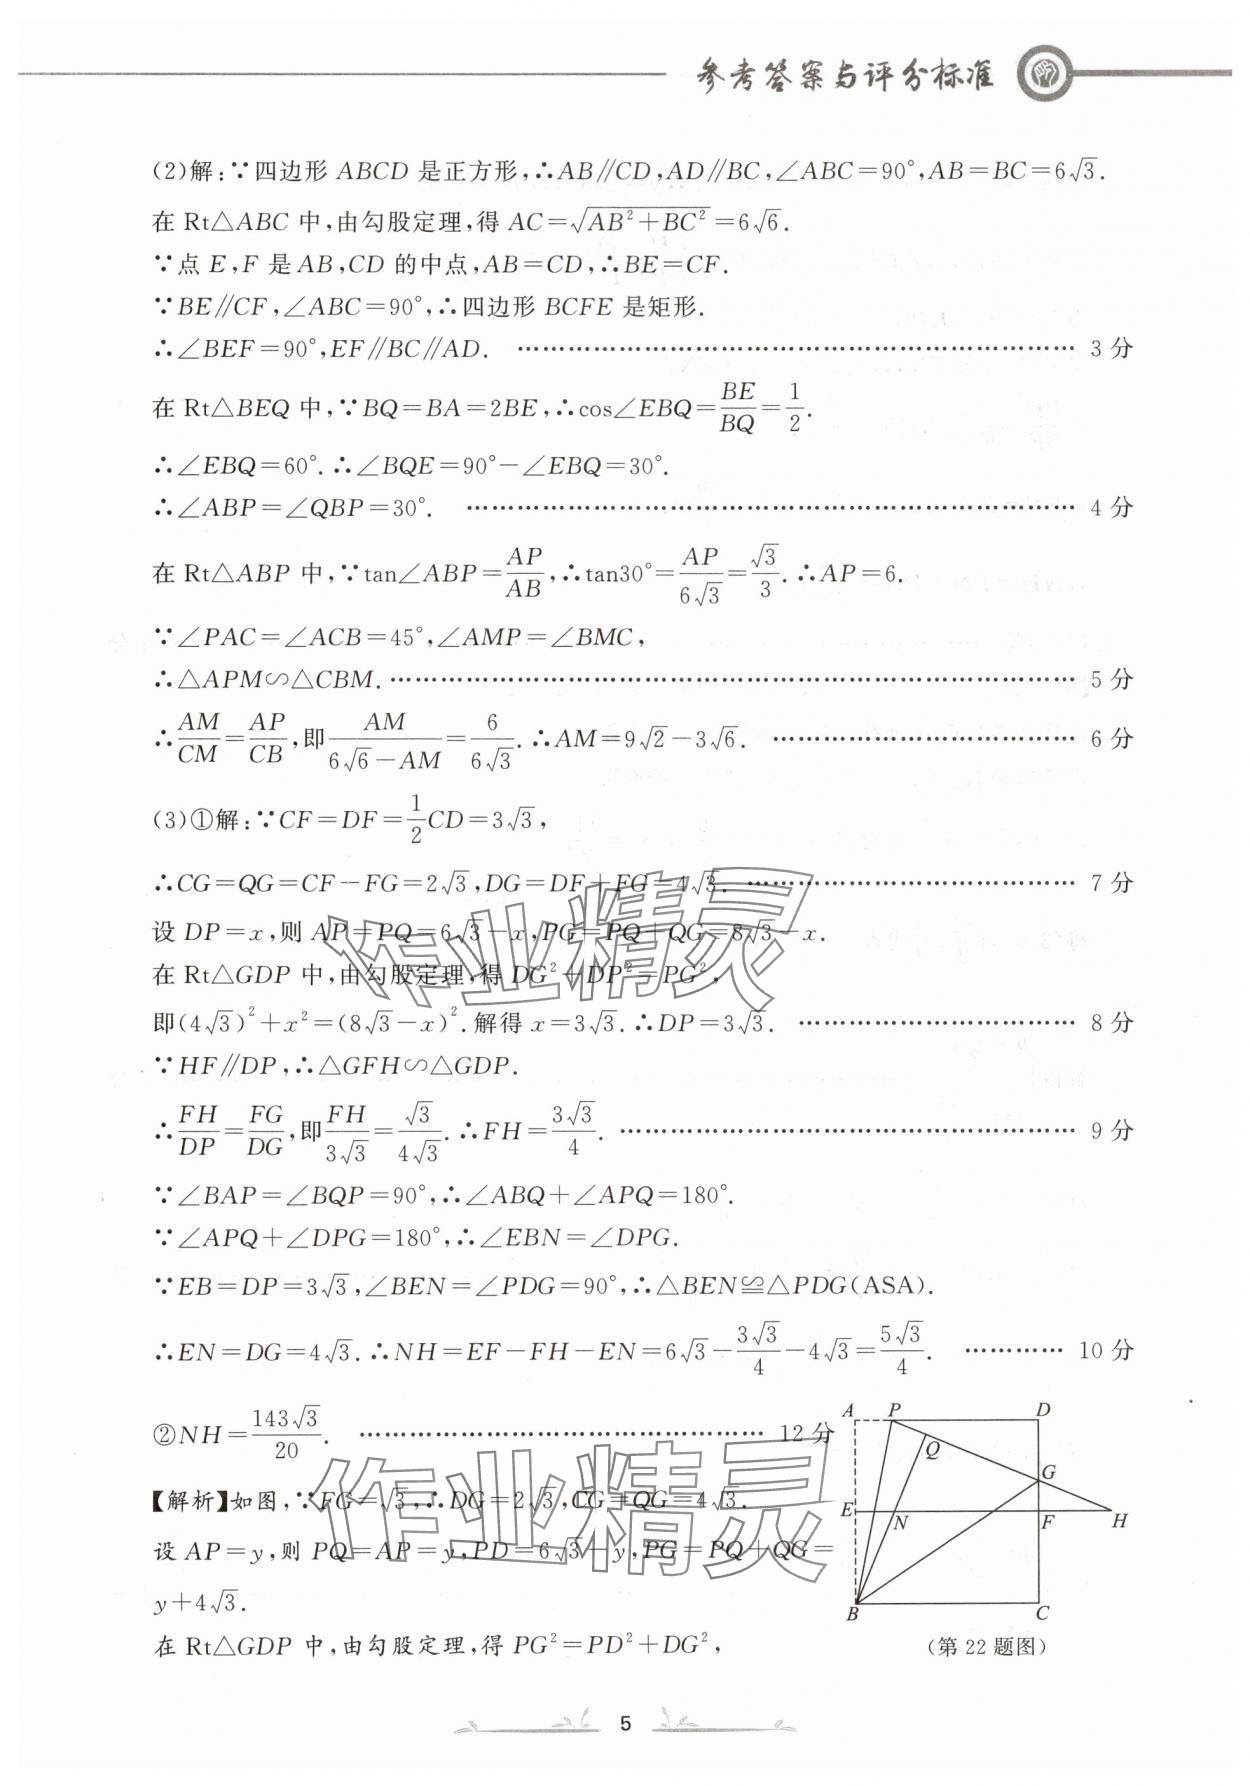 参考答案与评分标准
(2)解:∵四边形 ABCD 是正方形,∴AB∥CD,AD∥BC,∠ABC=90°,AB=BC=6√3.
在 Rt△ABC 中,由勾股定理,得 AC=√(AB²+BC²)=6√6.
∵点 E,F 是 AB,CD 的中点,AB=CD,∴BE=CF.
∵BE∥CF,∠ABC=90°,∴四边形 BCFE 是矩形.
∴∠BEF=90°,EF∥BC∥AD. …… 3 分
在 Rt△BEQ 中,∵BQ=BA=2BE,∴cos∠EBQ=BE/BQ=1/2.
∴∠EBQ=60°.∴∠BQE=90°-∠EBQ=30°.
∴∠ABP=∠QBP=30°. …… 4 分
在 Rt△ABP 中,∵tan∠ABP=AP/AB,∴tan30°=AP/6√3=√3/3.∴AP=6.
∵∠PAC=∠ACB=45°,∠AMP=∠BMC,
∴△APM∽△CBM. …… 5 分
∴AM/CM=AP/CB,即AM/(6√6-AM)=6/6√3.∴AM=9√2-3√6. …… 6 分
(3)①解:∵CF=DF=1/2CD=3√3,
∴CG=QG=CF-FG=2√3,DG=DF+FG=4√3. …… 7 分
设 DP=x,则 AP=PQ=6√3-x,PG=PQ+QG=8√3-x.
在 Rt△GDP 中,由勾股定理,得 DG²+DP²=PG²,
即(4√3)²+x²=(8√3-x)².解得 x=3√3.∴DP=3√3. …… 8 分
∵HF∥DP,∴△GFH∽△GDP.
∴FH/DP=FG/DG,即FH/3√3=√3/4√3.∴FH=3√3/4. …… 9 分
∵∠BAP=∠BQP=90°,∴∠ABQ+∠APQ=180°.
∵∠APQ+∠DPG=180°,∴∠EBN=∠DPG.
∵EB=DP=3√3,∠BEN=∠PDG=90°,∴△BEN≌△PDG(ASA).
∴EN=DG=4√3.∴NH=EF-FH-EN=6√3-3√3/4-4√3=5√3/4. …… 10 分
②NH=143√3/20. …… 12 分
【解析】如图,∵FG=√3,∴DG=2√3,CG=QG=4√3.
设 AP=y,则 PQ=AP=y,PD=6√3-y,PG=PQ+QG=
y+4√3.
在 Rt△GDP 中,由勾股定理,得 PG²=PD²+DG²,
A P D
Q
G
E N F H
B C
(第 22 题图)
作业精灵
作业精灵
5